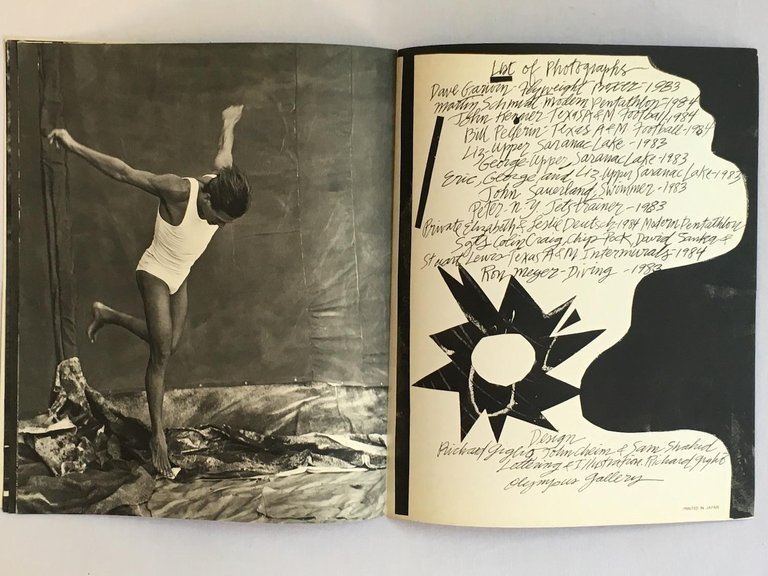 List of Photographs
Dave Garvin-Flyweight Boxer-1983
Martin Schmidt Modern Pentathlon-1984
John Henner Texas A&M Football, 1984
Bill Pellerin-Texas A&M Football-1984
Liz-Upper Saranac Lake-1983
George-Upper Saranac Lake-1983
Eric, George, and Liz, Upper Saranac Lake-1983
John Sauerland, Swimmer-1983
Peter-N.Y. Jets trainer-1983
Private Elizabeth & Leslie Deutsch, 1984 Modern Pentathlon
Sgts Colin Craig, Chip Peck, David &
Stuart Lewis-Texas A&M Intermurals 1984
Ron Meyer-Diving-1983
Design
Richard Giglio, John Cheim & Sam Shahid
Lettering & Illustration Richard Giglio
Olympus Gallery
PRINTED IN JAPAN